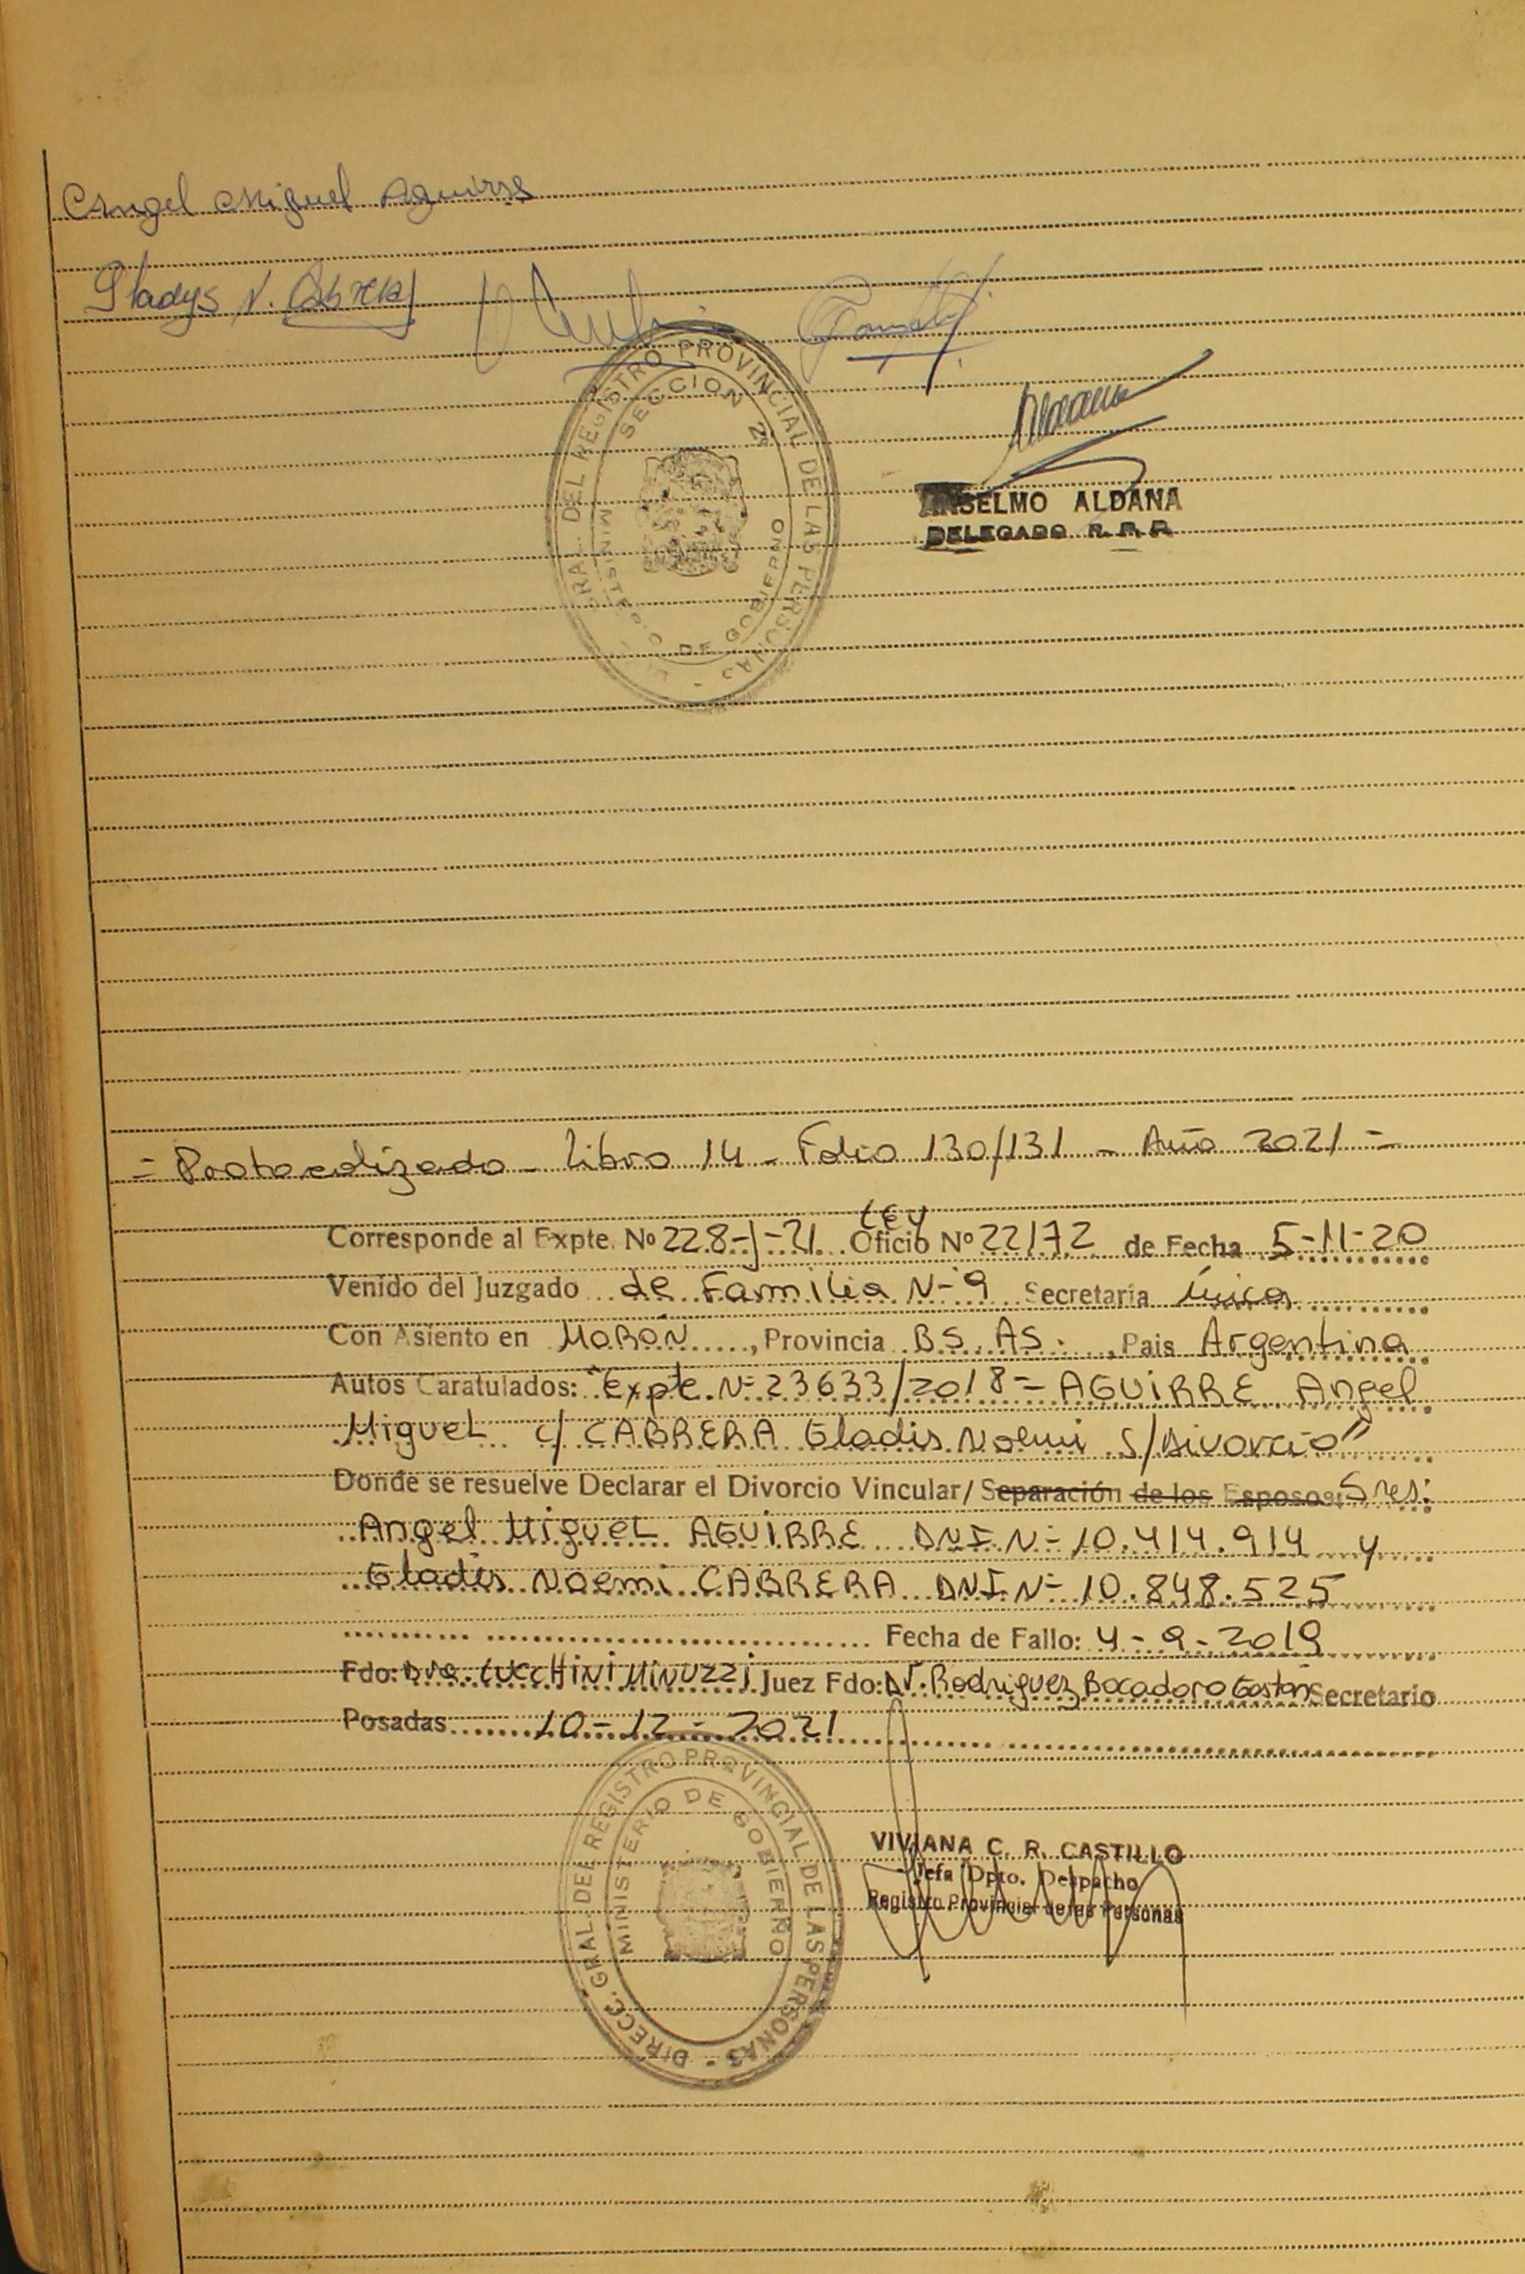 Angel Miguel Aguirre
Gladys N. Cabrera
GRAL. DEL REGISTRO PROVINCIAL DE LAS PERSONAS
SECCION 2ª
MINISTERIO DE GOBIERNO
ANSELMO ALDANA
DELEGADO R. P. P.
= Protocolizado - Libro 14 - Folio 130/131 - Año 2021 =
Corresponde al Expte. Nº 228-J-21 Ley Oficio Nº 22172 de Fecha 5-11-20
Venido del Juzgado de Familia Nº 9 Secretaría Única
Con Asiento en MORÓN, Provincia BS. AS., Pais Argentina
Autos Caratulados: "Expte. Nº 23633/2018 = AGUIRRE Angel
Miguel c/ CABRERA Gladis Noemi S/Divorcio"
Donde se resuelve Declarar el Divorcio Vincular/ Separación de los Esposos: Sres:
Angel Miguel AGUIRRE DNI Nº 10.414.914 y
Gladis Noemi CABRERA DNI Nº 10.848.525
Fecha de Fallo: 4-9-2019
Fdo: Dra. LUCCHINI MINUZZI Juez Fdo: Dr. Rodriguez Bocadoro Gastón Secretario
Posadas 10-12-2021
DIRECC. GRAL. DEL REGISTRO PROVINCIAL DE LAS PERSONAS
MINISTERIO DE GOBIERNO
VIVIANA C. R. CASTILLO
Jefa Dpto. Despacho
Registro Provincial de las Personas